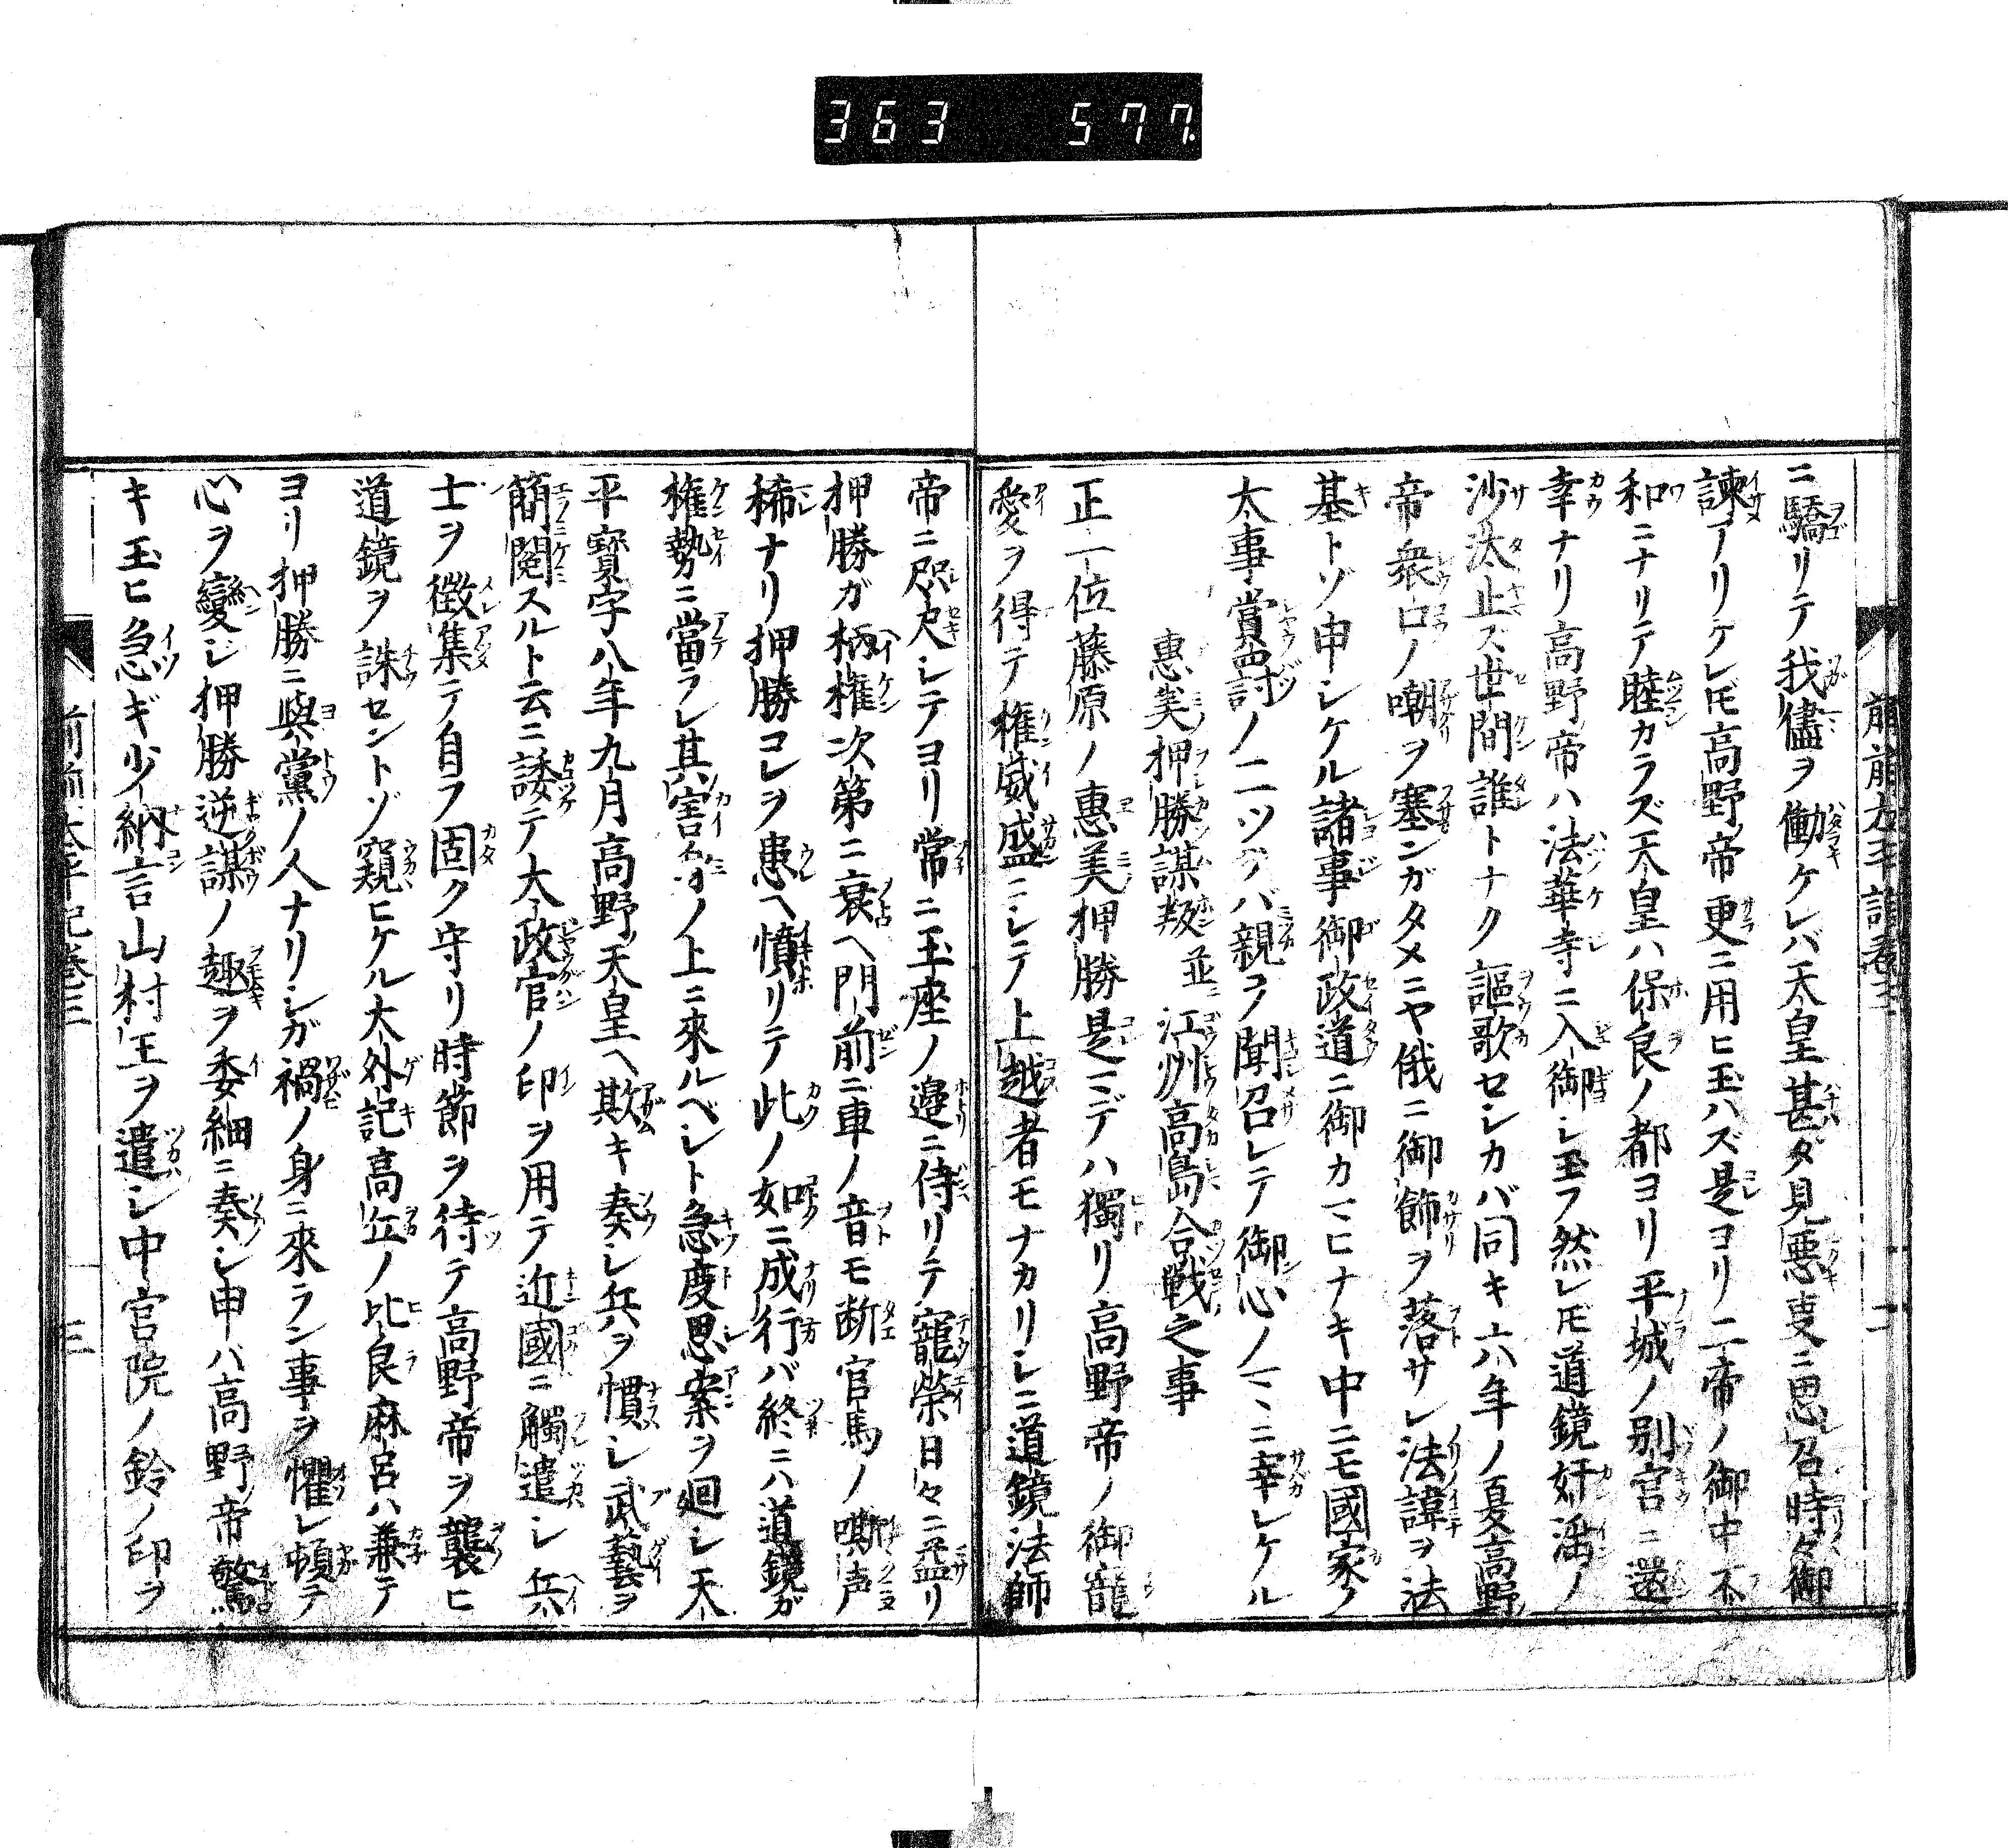 363 577.
前前太平記卷三 二
ニ驕リテ我儘ヲ働ケレバ天皇甚ダ見悪叓ニ思召時々御
諫アリケレ𪜈高野帝更ニ用ヒ玉ハズ是ヨリ二帝ノ御中不
和ニナリテ睦カラズ天皇ハ保良ノ都ヨリ平城ノ別宮ニ還
幸ナリ高野帝ハ法華寺ニ入御シ玉フ然レ𪜈道鏡奸淫ノ
沙汰止ズ世間誰トナク謳歌セシカバ同キ六年ノ夏高野
帝衆口ノ嘲ヲ塞ンガタメニヤ俄ニ御飾ヲ落サレ法諱ヲ法
基トゾ申シケル諸事御政道ニ御カマヒナキ中ニモ國家ノ
大事賞罰ノ二ツヲバ親ラ聞召レテ御心ノマヽニ宰レケル
惠美押勝謀叛並江州高島合戰之事
正一位藤原ノ惠美押勝是マデハ獨リ高野帝ノ御寵
愛ヲ得テ権威盛ニシテ上越者モナカリシニ道鏡法師
帝ニ咫尺シテヨリ常ニ玉座ノ邉ニ侍リテ寵榮日々ニ益リ
押勝ガ柄権次第ニ衰ヘ門前ニ車ノ音モ断官馬ノ嘶声
稀ナリ押勝コレヲ患ヘ憤リテ此ノ如ニ成行バ終ニハ道鏡ガ
権勢ニ當ラレ其害身ノ上ニ來ルベシト急度思案ヲ廻シ天
平寳字八年九月高野天皇ヘ欺キ奏シ兵ヲ慣シ武藝ヲ
簡閲スルト云ニ諉テ太政官ノ印ヲ用テ近國ニ觸遣シ兵
士ヲ徴集テ自ラ固ク守リ時節ヲ待テ高野帝ヲ襲ヒ
道鏡ヲ誅セントゾ窺ヒケル大外記高丘ノ比良麻呂ハ兼テ
ヨリ押勝ニ與黨ノ人ナリシガ禍ノ身ニ來ラン事ヲ懼レ頓テ
心ヲ變シ押勝逆謀ノ趣ヲ委細ニ奏シ申バ高野帝驚
キ玉ヒ急ギ少納言山村王ヲ遣シ中宮院ノ鈴ノ印ヲ
前前太平記卷三 三